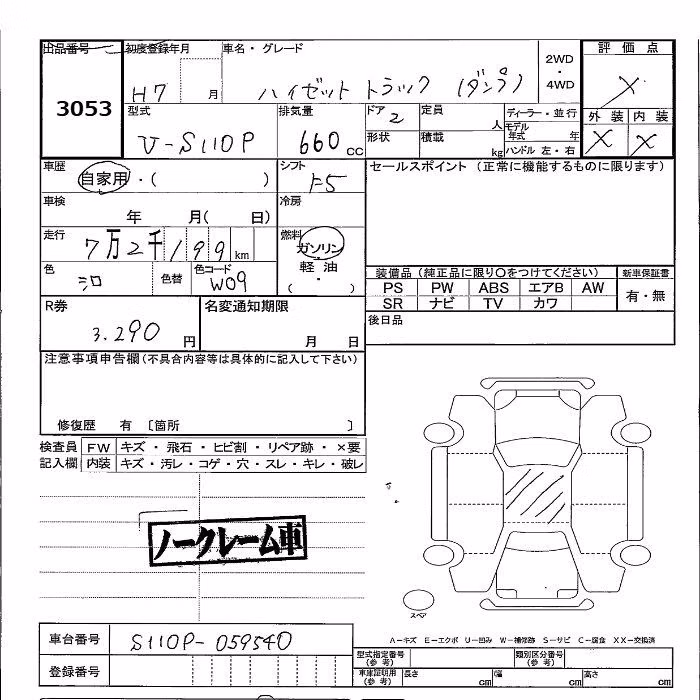 出品番号 初度登録年月 車名・グレード 2WD・4WD 評価点
3053 H7 月 ハイゼット トラック (ダンプ) X
型式 排気量 ドア 2 定員 人 ディーラー・並行 外装 内装
V-S110P 660 cc 形状 積載 kg モデル年式 年 ハンドル 左・右 X X
車歴 自家用・( ) シフト F5 セールスポイント (正常に機能するものに限ります)
車検 年 月( 日) 冷房
走行 7万2千199km 燃料 ガソリン 軽油 ・ ( )
色 シロ 色替 色コード W09
装備品 (純正品に限り○をつけてください) 新車保証書
PS PW ABS エアB AW 有・無
SR ナビ TV カワ
R券 3.290 円 名変通知期限 月 日 後日品
注意事項申告欄(不具合内容等は具体的に記入して下さい)
修復歴 有 〔箇所 〕
検査員 FW キズ・飛石・ヒビ割・リペア跡・×要
記入欄 内装 キズ・汚レ・コゲ・穴・スレ・キレ・破レ
ノークレーム車
スペア
A-キズ E-エクボ U-凹み W-補修跡 S-サビ C-腐食 XX-交換済
車台番号 S110P-059540
型式指定番号(参考) 類別区分番号(参考)
登録番号
車庫証明用(参考) 長さ cm 幅 cm 高さ cm